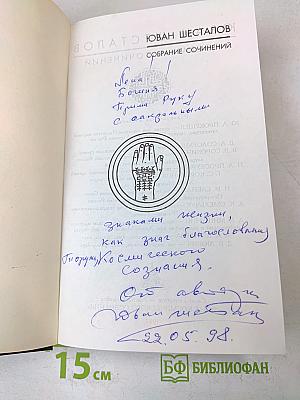 ЮВАН ШЕСТАЛОВ
СОБРАНИЕ СОЧИНЕНИЙ
Лена!
Богиня
Прими Руку
с сакральными
знаками жизни,
как знак благословения
Космического
сознания.
От автора
Юван Шесталов
22.05.98.
15 см
БФ БИБЛИОФАН